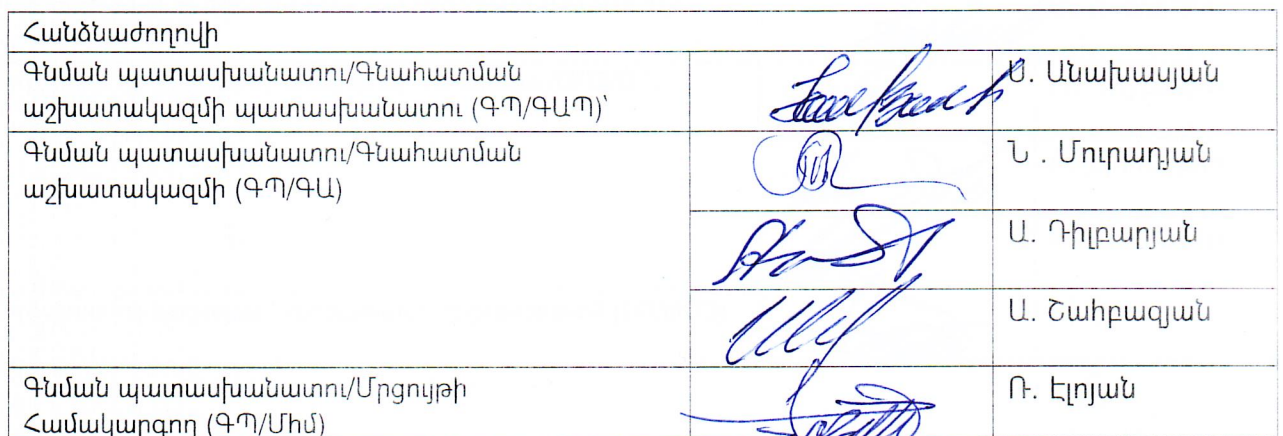 Հանձնաժողովի
Գնման պատասխանատու/Գնահատման
աշխատակազմի պատասխանատու (ԳՊ/ԳԱՊ)՝
Ս. Անախասյան
Գնման պատասխանատու/Գնահատման
աշխատակազմի (ԳՊ/ԳԱ)
Ն . Մուրադյան
Ա. Դիլբարյան
Ա. Շահբազյան
Գնման պատասխանատու/Մրցույթի
Համակարգող (ԳՊ/Միմ)
Ռ. Էլոյան